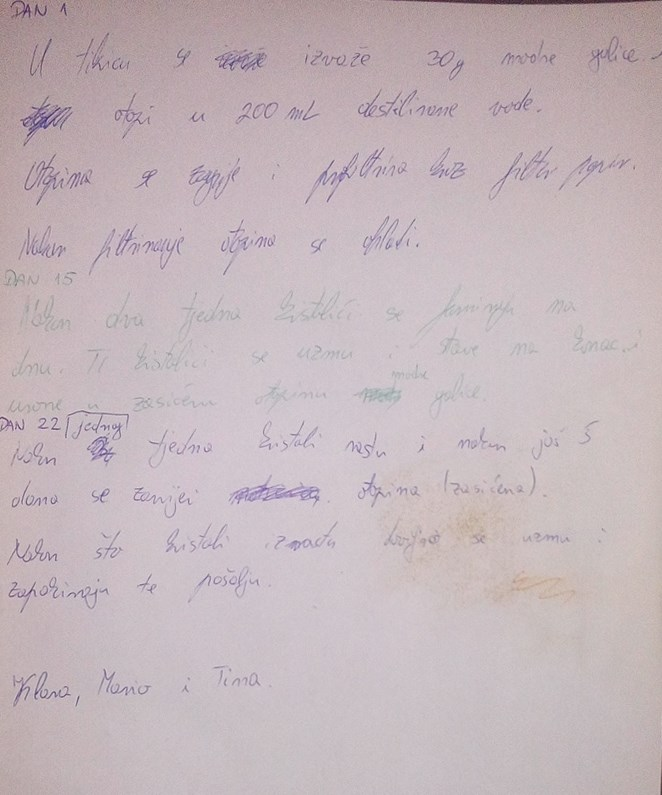 DAN 1
U tikvicu se izvaže 30g modre galice i
otopi u 200 mL destilirane vode.
Otopina se zagrije i profiltrira kroz filter papir.
Nakon filtriranja otopina se ohladi.
DAN 15
Nakon dva tjedna kristalići se formiraju na
dnu. Ti kristalići se uzmu i stave na konac i
urone u zasićenu otopinu modre galice.
DAN 22
Nakon jednog tjedna kristali rastu i nakon još 5
dana se zamijeni otopina (zasićena).
Nakon što kristali izrastu dovoljno se uzmu i
zapakiraju te pošalju.
Mario i Tina.